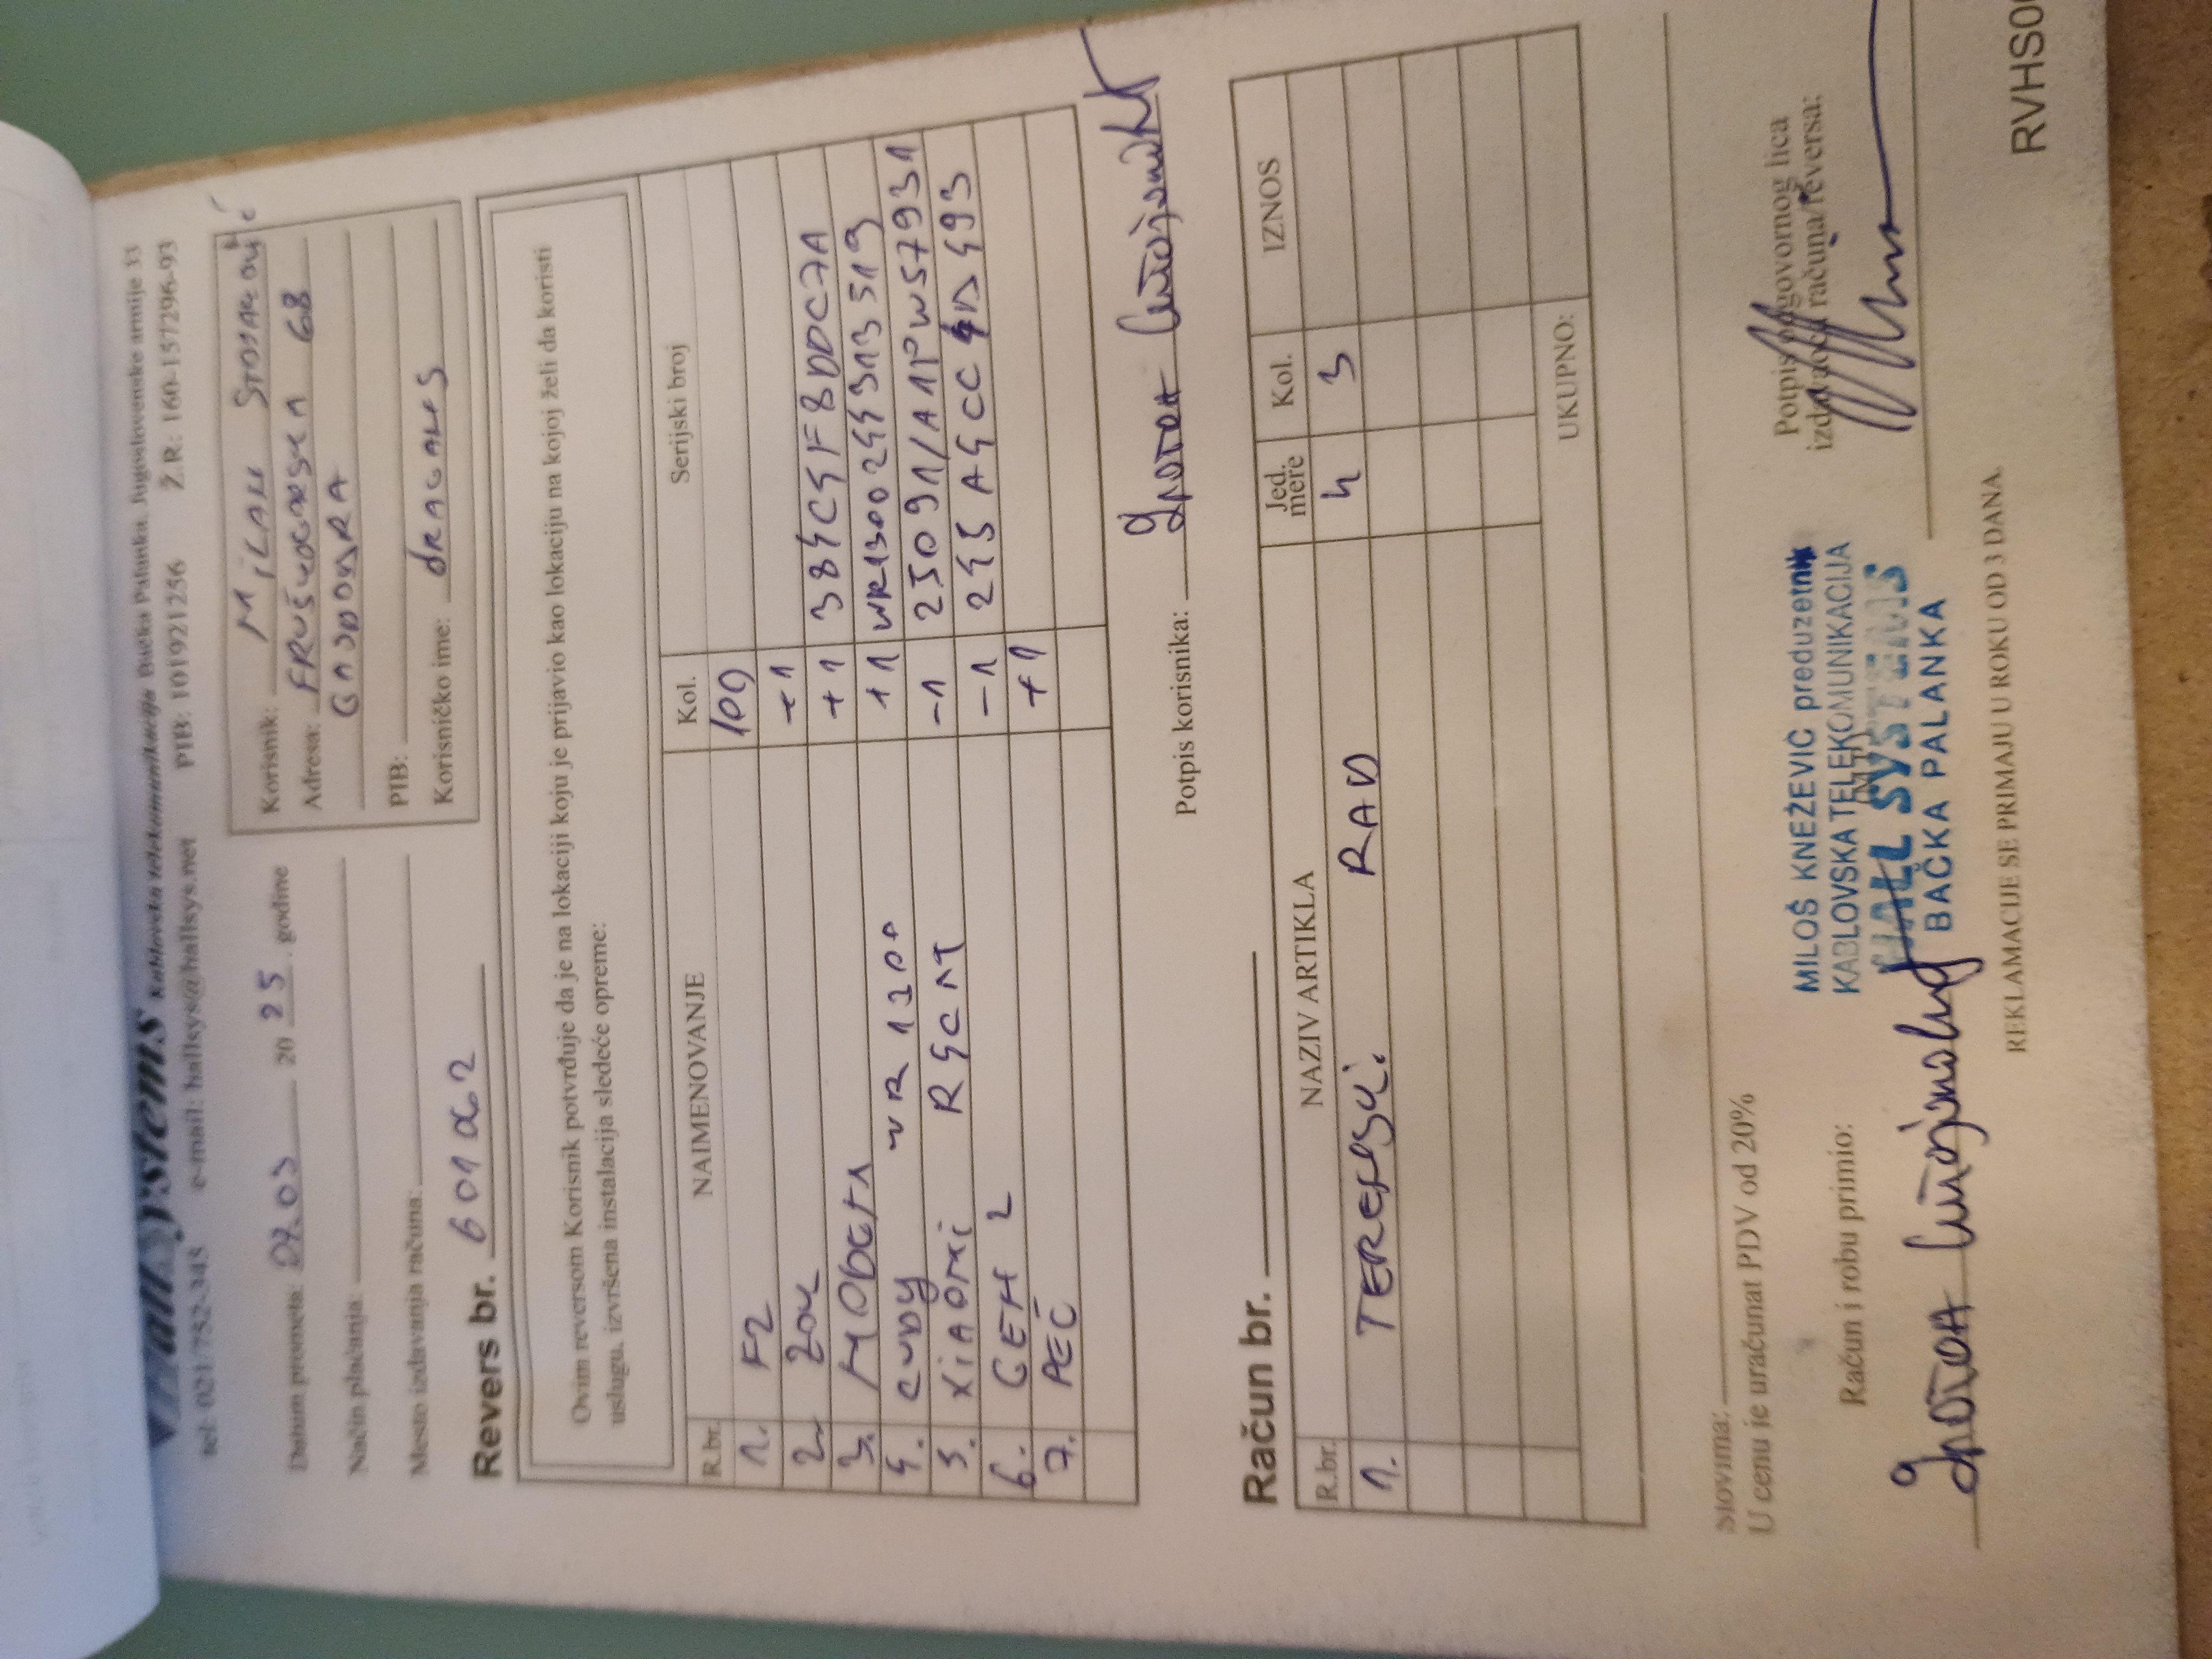 HallSystems Kablovska telekomunikacija Bačka Palanka, Jugoslovenske armije 33
tel: 021/752-345 e-mail: hallsys@hallsys.net PIB: 101921256 Ž.R: 160-157296-93
Datum prometa: 07.03 20 25. godine
Način plaćanja:
Mesto izdavanja računa:
Korisnik: MILAN STOJANOVIĆ
Adresa: FRUŠKOGORSKA 68
GAJDOBRA
PIB:
Korisničko ime: DRAGANS
Revers br. 601062
Ovim reversom Korisnik potvrđuje da je na lokaciji koju je prijavio kao lokaciju na kojoj želi da koristi
uslugu, izvršena instalacija sledeće opreme:
R.br. NAIMENOVANJE Kol. Serijski broj
1. F2 100
2. ZOK +1
3. MODEM +1 384C4F8DDC7A
4. CUDY WR1300 +1 WR13002443113519
5. XIAOMI R4CM -1 25091/A1PW57931
6. GEH 2 -1 245A4CC4D493
7. PEČ +1
Potpis korisnika:
Račun br.
R.br. NAZIV ARTIKLA Jed. mere Kol. IZNOS
1. TERENSKI RAD h 3
UKUPNO:
Slovima:
U cenu je uračunat PDV od 20%
Račun i robu primio:
MP
Potpis odgovornog lica
izdavaoca računa/reversa:
MILOŠ KNEŽEVIĆ preduzetnik
KABLOVSKA TELEKOMUNIKACIJA
HALL SYSTEMS
BAČKA PALANKA
REKLAMACIJE SE PRIMAJU U ROKU OD 3 DANA.